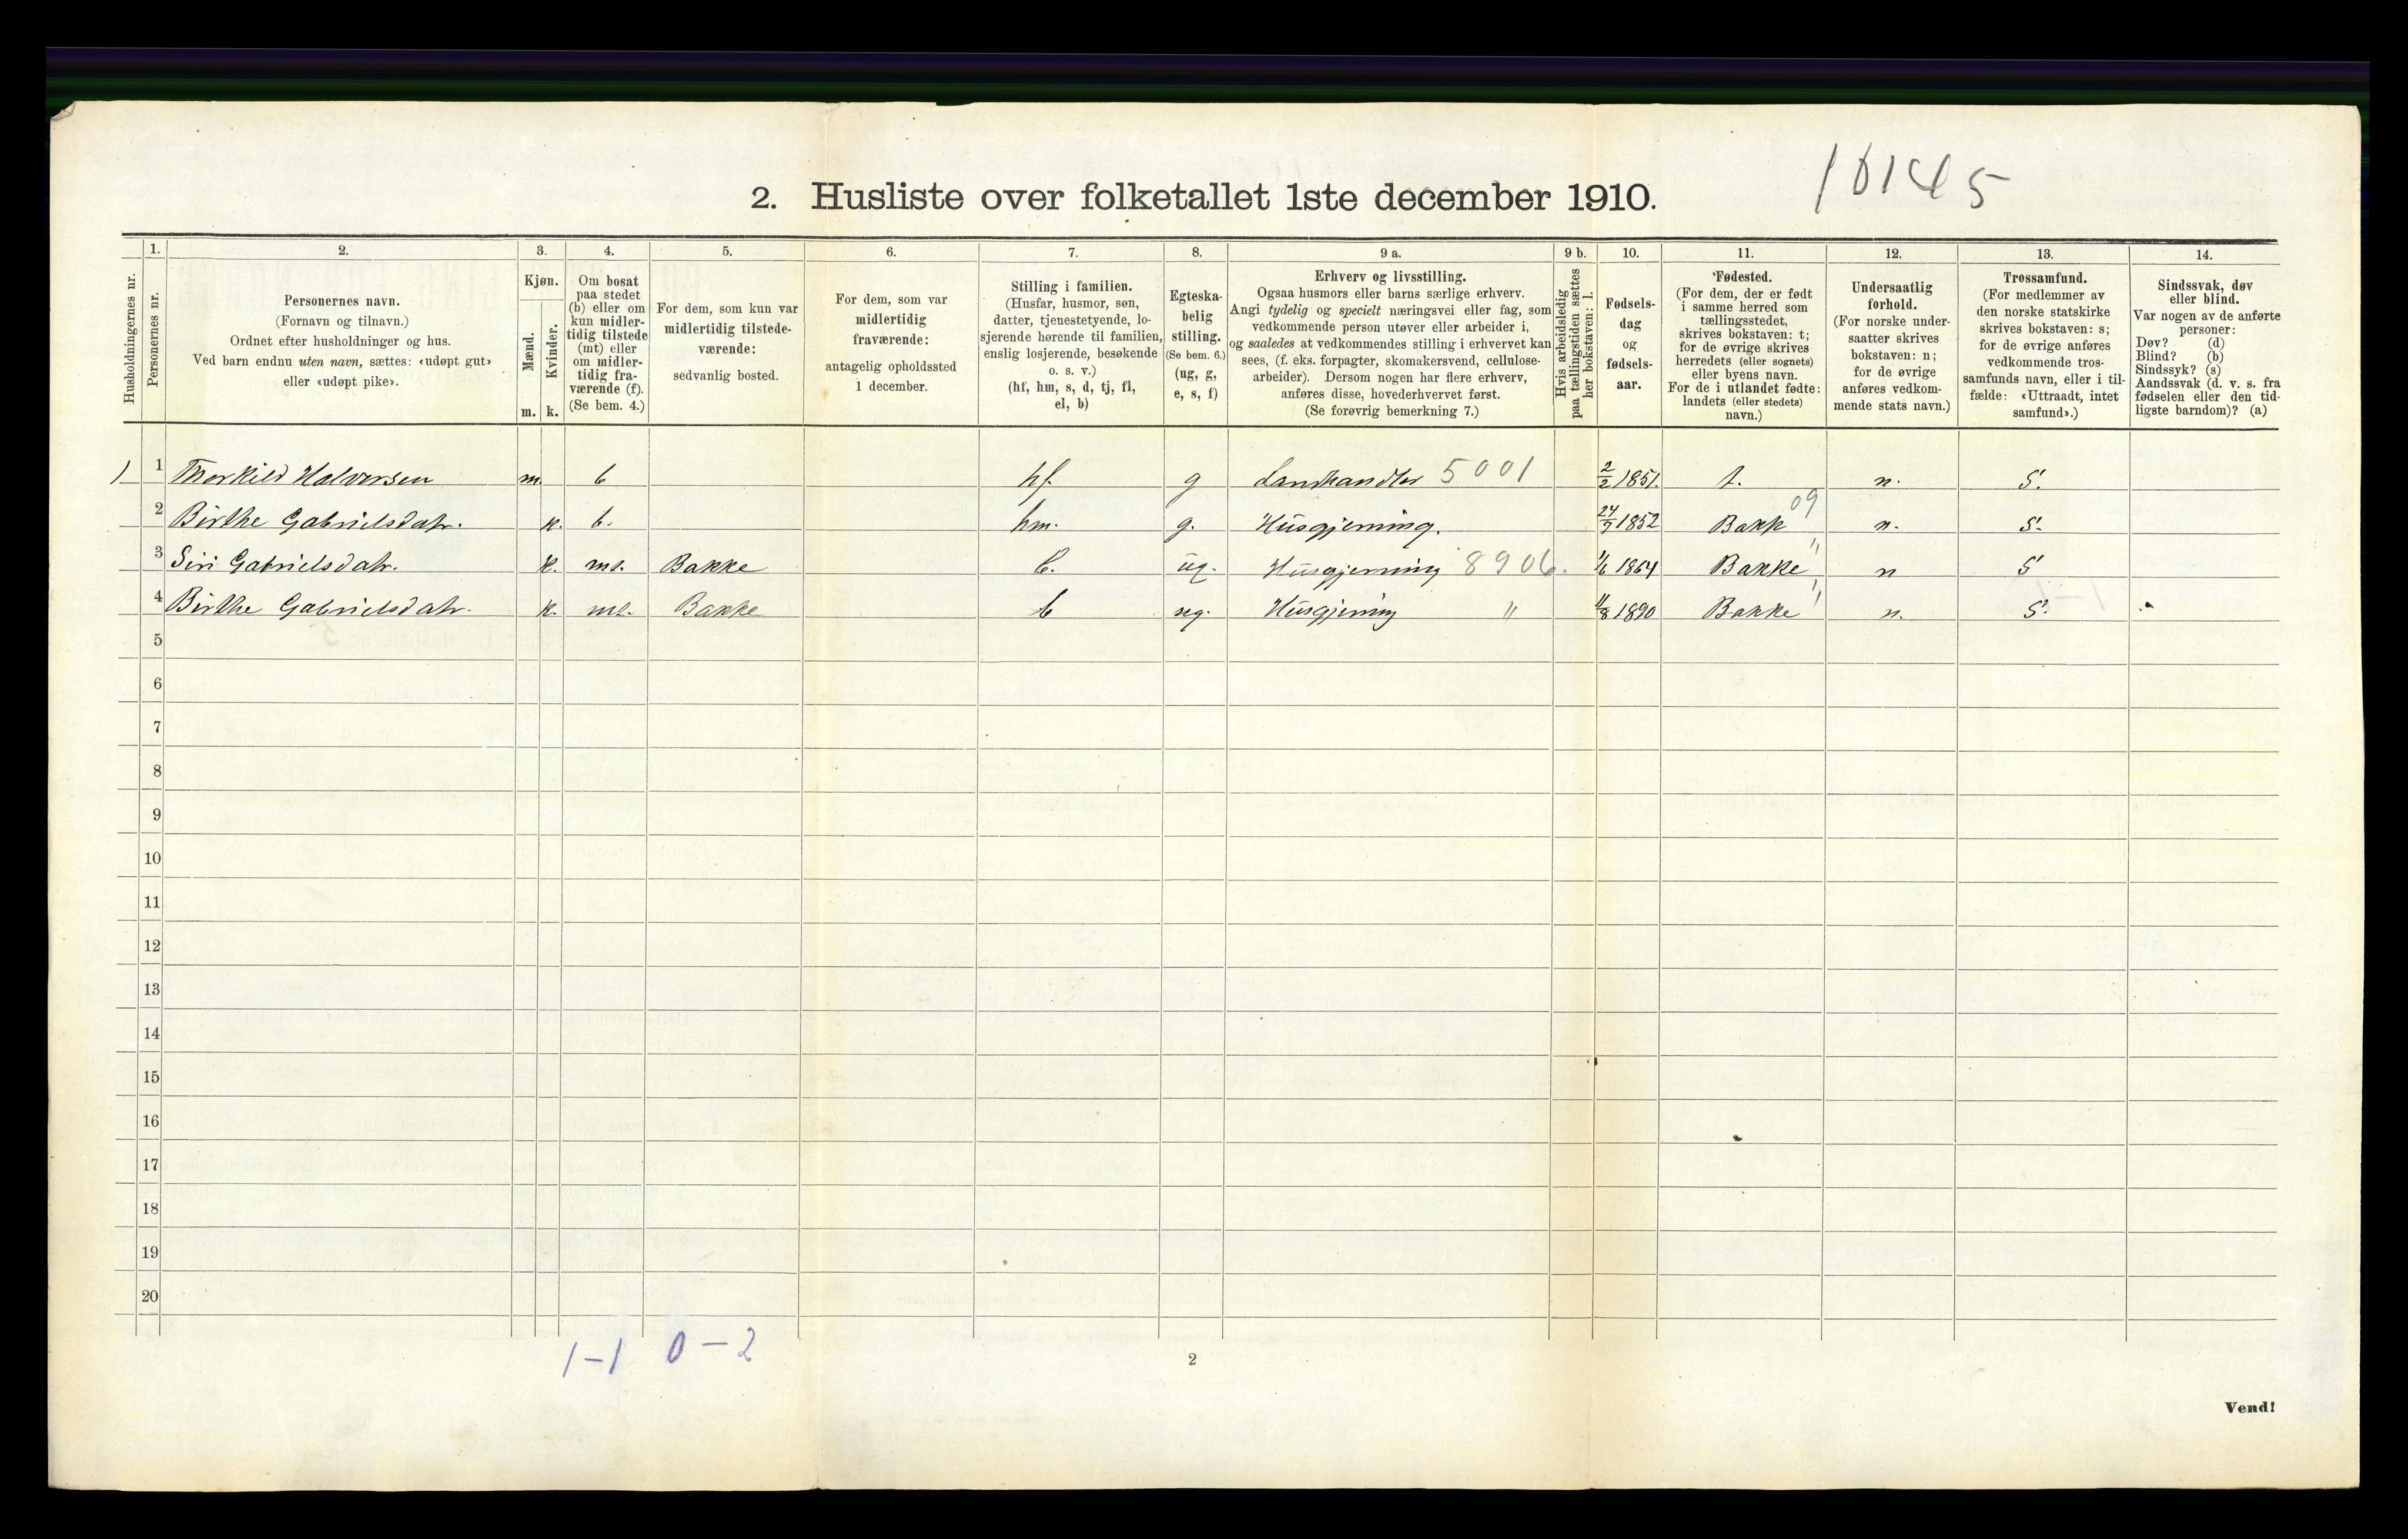 10145
2. Husliste over folketallet 1ste december 1910.
Husholdningernes nr.
1.
Personernes nr.
2.
Personernes navn.
(Fornavn og tilnavn.)
Ordnet efter husholdninger og hus.
Ved barn endnu uten navn, sættes: «udøpt gut»
eller «udøpt pike».
3.
Kjøn.
Mænd.
Kvinder.
m. k.
4.
Om bosat
paa stedet
(b) eller om
kun midler-
tidig tilstede
(mt) eller
om midler-
tidig fra-
værende (f).
(Se bem. 4.)
5.
For dem, som kun var
midlertidig tilstede-
værende:
sedvanlig bosted.
6.
For dem, som var
midlertidig
fraværende:
antagelig opholdssted
1 december.
7.
Stilling i familien.
(Husfar, husmor, søn,
datter, tjenestetyende, lo-
sjerende hørende til familien,
enslig losjerende, besøkende
o. s. v.)
(hf, hm, s, d, tj, fl,
el, b)
8.
Egteska-
belig
stilling.
(Se bem. 6.)
(ug, g,
e, s, f)
9 a.
Erhverv og livsstilling.
Ogsaa husmors eller barns særlige erhverv.
Angi tydelig og specielt næringsvei eller fag, som
vedkommende person utøver eller arbeider i,
og saaledes at vedkommendes stilling i erhvervet kan
sees, (f. eks. forpagter, skomakersvend, cellulose-
arbeider). Dersom nogen har flere erhverv,
anføres disse, hovederhvervet først.
(Se forøvrig bemerkning 7.)
9 b.
Hvis arbeidsledig
paa tællingstiden sættes
her bokstaven: l.
10.
Fødsels-
dag
og
fødsels-
aar.
11.
Fødested.
(For dem, der er født
i samme herred som
tællingsstedet,
skrives bokstaven: t;
for de øvrige skrives
herredets (eller sognets)
eller byens navn.
For de i utlandet fødte:
landets (eller stedets)
navn.)
12.
Undersaatlig
forhold.
(For norske under-
saatter skrives
bokstaven: n;
for de øvrige
anføres vedkom-
mende stats navn.)
13.
Trossamfund.
(For medlemmer av
den norske statskirke
skrives bokstaven: s;
for de øvrige anføres
vedkommende tros-
samfunds navn, eller i til-
fælde: «Uttraadt, intet
samfund».)
14.
Sindssvak, døv
eller blind.
Var nogen av de anførte
personer:
Døv? (d)
Blind? (b)
Sindssyk? (s)
Aandssvak (d. v. s. fra
fødselen eller den tid-
ligste barndom)? (a)
1 1 Thorkild Halvorsen m. b hf. g Landhandler 5001 2/2 1851. t. n. S.
2 Birthe Gabrielsdatr. k. b. hm. g. Husgjerning. 24/9 1852 Bakk 09 n. S.
3 Siri Gabrielsdatr. k. mt. Bakke b. ug. Husgjerning 8906. 1/6 1864 Bakke " n S
4 Birthe Gabrielsdatr. k. mt. Bakke b ug. Husgjerning " 11/8 1890 Bakke " n. S.
5
6
7
8
9
10
11
12
13
14
15
16
17
18
19
20
1-1 0-2
2
Vend!